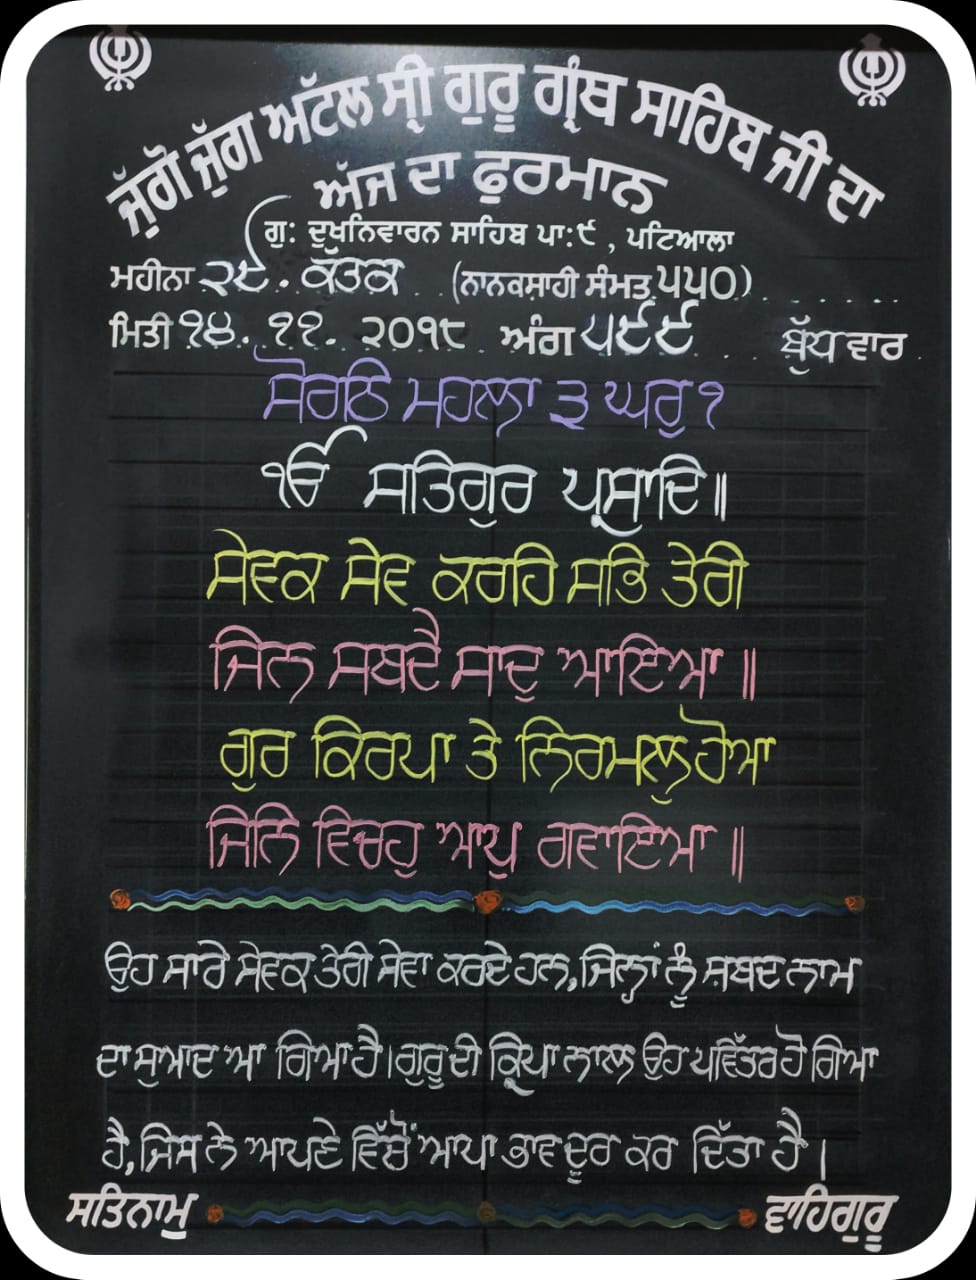 ਜੁੱਗੋ ਜੁੱਗ ਅਟੱਲ ਸ੍ਰੀ ਗੁਰੂ ਗ੍ਰੰਥ ਸਾਹਿਬ ਜੀ ਦਾ
ਅੱਜ ਦਾ ਫੁਰਮਾਨ
ਗੁ: ਦੁਖਨਿਵਾਰਨ ਸਾਹਿਬ ਪਾ:੯, ਪਟਿਆਲਾ
ਮਹੀਨਾ ੨੯. ਕੱਤਕ (ਨਾਨਕਸ਼ਾਹੀ ਸੰਮਤ ੫੫੦)
ਮਿਤੀ ੧੪. ੧੧. ੨੦੧੮ ਅੰਗ ੫੯੯ ਬੁੱਧਵਾਰ
ਸੋਰਠਿ ਮਹਲਾ ੩ ਘਰੁ ੧
ੴ ਸਤਿਗੁਰ ਪ੍ਰਸਾਦਿ॥
ਸੇਵਕ ਸੇਵ ਕਰਹਿ ਸਭਿ ਤੇਰੀ
ਜਿਨ ਸਬਦੈ ਸਾਦੁ ਆਇਆ ॥
ਗੁਰ ਕਿਰਪਾ ਤੇ ਨਿਰਮਲੁ ਹੋਆ
ਜਿਨਿ ਵਿਚਹੁ ਆਪੁ ਗਵਾਇਆ ॥
ਉਹ ਸਾਰੇ ਸੇਵਕ ਤੇਰੀ ਸੇਵਾ ਕਰਦੇ ਹਨ, ਜਿਨ੍ਹਾਂ ਨੂੰ ਸ਼ਬਦ ਨਾਮ
ਦਾ ਸੁਆਦ ਆ ਗਿਆ ਹੈ। ਗੁਰੂ ਦੀ ਕ੍ਰਿਪਾ ਨਾਲ ਉਹ ਪਵਿੱਤਰ ਹੋ ਗਿਆ
ਹੈ, ਜਿਸ ਨੇ ਆਪਣੇ ਵਿੱਚੋਂ ਆਪਾ ਭਾਵ ਦੂਰ ਕਰ ਦਿੱਤਾ ਹੈ।
ਸਤਿਨਾਮੁ ਵਾਹਿਗੁਰੂ